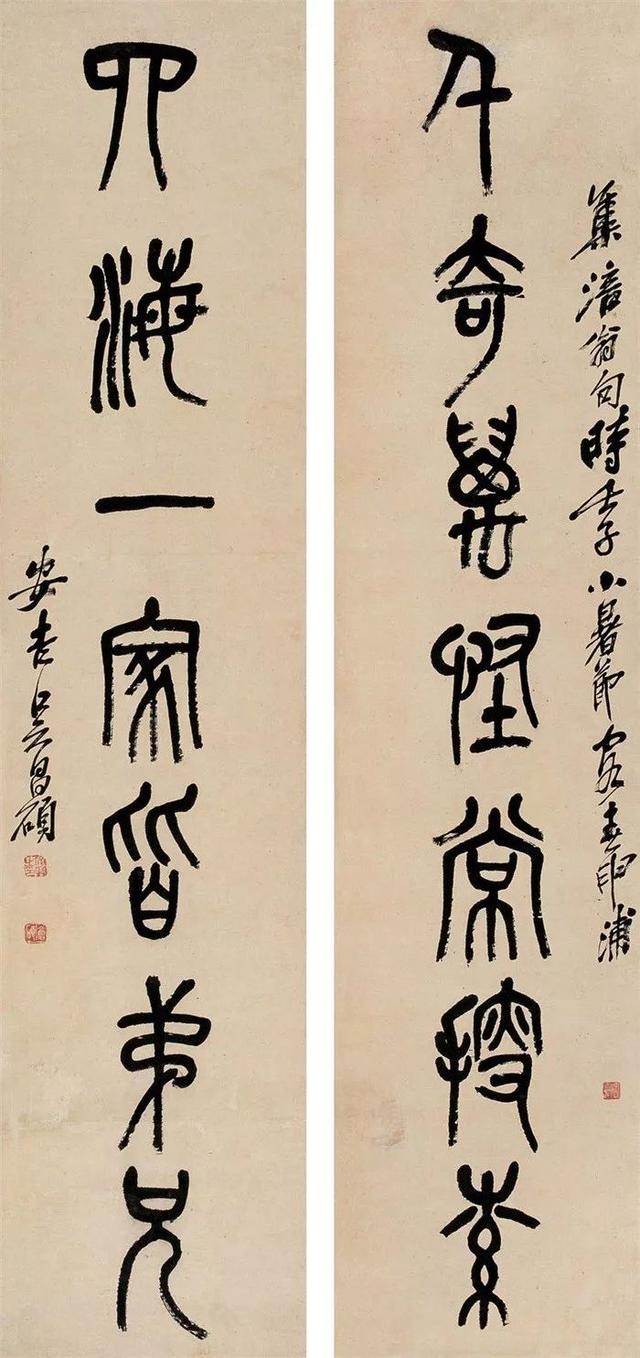 集涪翁句時壬子小暑節客春申浦
千奇萬怪常搜索
四海一家皆弟兄
安吉吳昌碩